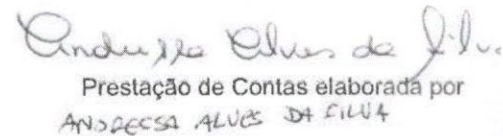 Andressa Alves da Silva
Prestação de Contas elaborada por
ANDRESSA ALVES DA SILVA